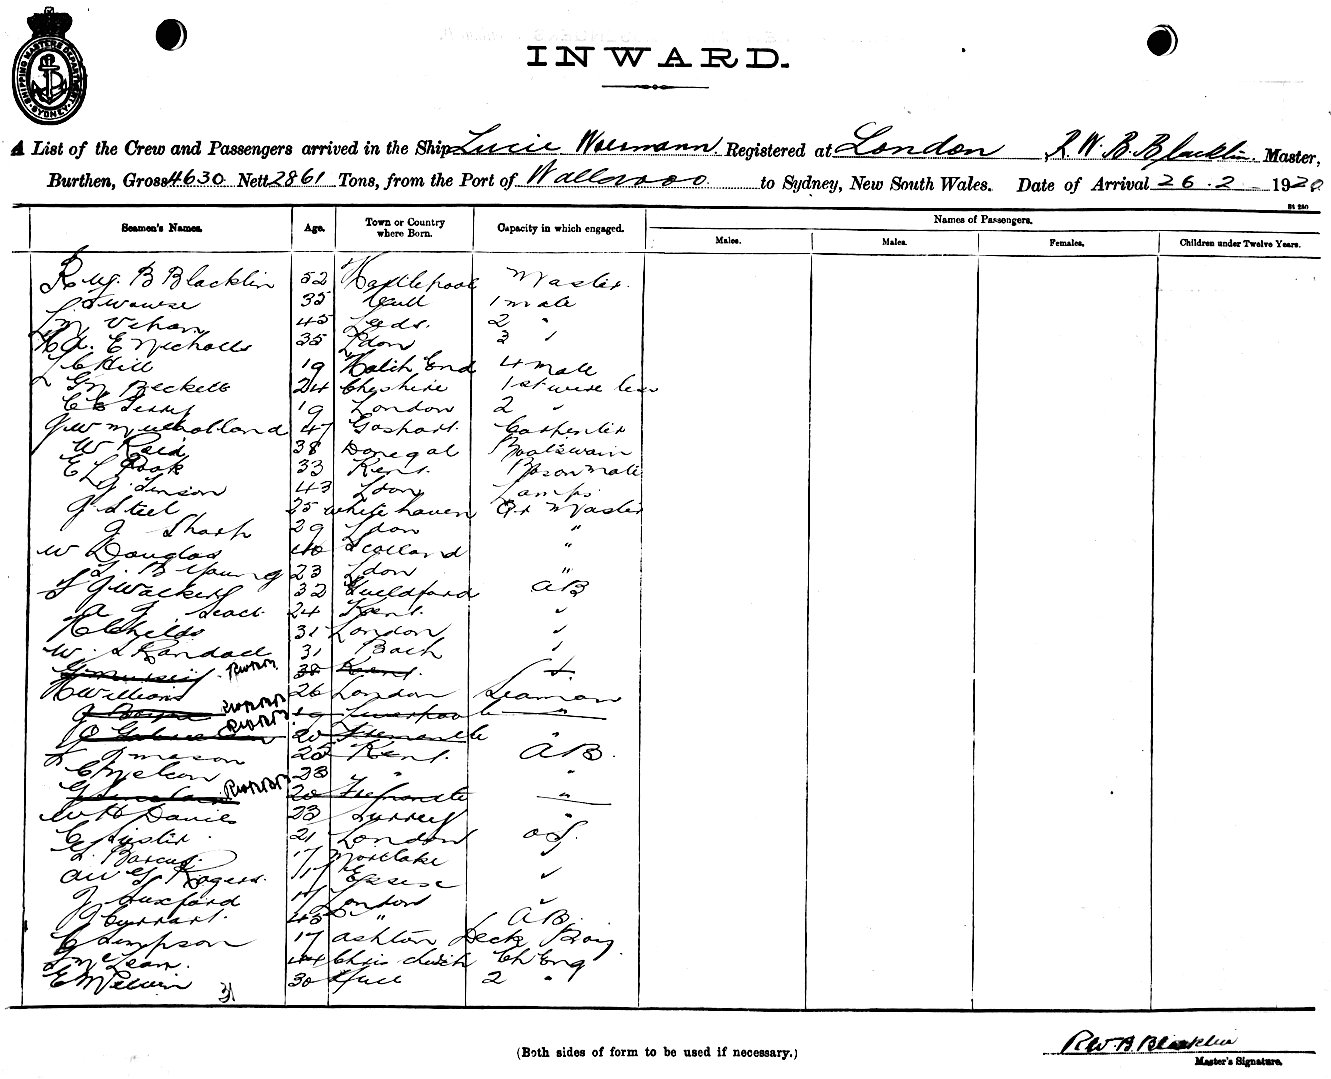 SHIPPING MASTERS DEPARTMENT SYDNEY
INWARD.
A List of the Crew and Passengers arrived in the Ship Lucie Woermann Registered at London R. W. B. Blacklin. Master,
Burthen, Gross 4630 Nett 2861 Tons, from the Port of Wallaroo to Sydney, New South Wales. Date of Arrival 26.2 1920
Seamen's Names. Age. Town or Country where Born. Capacity in which engaged. Names of Passengers.
Males. Males. Females. Children under Twelve Years.
B Blacklin 52 Hartlepool Master
35 Hull 1 mate
45 Leeds. 2 "
E Nicholls 35 Ldon 3 "
Hill 19 4 mate
Beckett 24 Cheshire 1st wireless
19 London 2 "
J W Mulholland 47 Gosport Carpenter
W Reid 38 Donegal Boatswain
E L Cook 33 Kent. Bosonmate
43 Ldon Lamps
J Steel 25 Whitehaven Qr Master
J Sharp 29 Ldon "
W Douglas 40 Scotland "
B Young 23 Ldon "
J Walker 32 Guildford AB
24 Kent. "
H Childs 31 London "
W Randall 31 Bath "
38 Kent.
H Williams 26 London Seaman
19 Liverpool "
20 Fremantle "
J Mason 25 Kent. AB.
C Nelson 23 " "
20 Fremantle "
W H Davies 23 Surrey "
21 London O S.
Barcus 17 Mortlake "
Rogers. 17 Essex "
J Huxford 17 London "
45 " AB.
C Simpson 17 Ashton Deck Boy
McLean 44 Christchurch Ch Eng
E Melvin 30 Hull 2 "
31
(Both sides of form to be used if necessary.)
R W B Blacklin
Master's Signature.